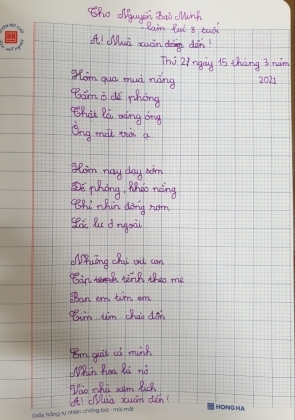 Thơ Nguyễn Bảo Minh
làm lúc 8 tuổi
A! Mùa xuân đến!
Thứ 2 ngày 15 tháng 3 năm 2021
Hôm qua mưa nắng
Cầm ô đề phòng
Thật là vàng óng
Ông mặt trời ạ
Hôm nay dậy sớm
Đề phòng, khéo nắng
Chỉ nhìn đống rơm
Lắc lư ở ngoài
Những chú vịt con
Tập tễnh theo mẹ
Ban em tìm em
Tìm chào đón
Em giật cả mình
Nhìn hoa lá nở
Vào nhà xem lịch
A! Mùa xuân đến!
Giấy trắng tự nhiên chống loá - mỏi mắt
HONG HA